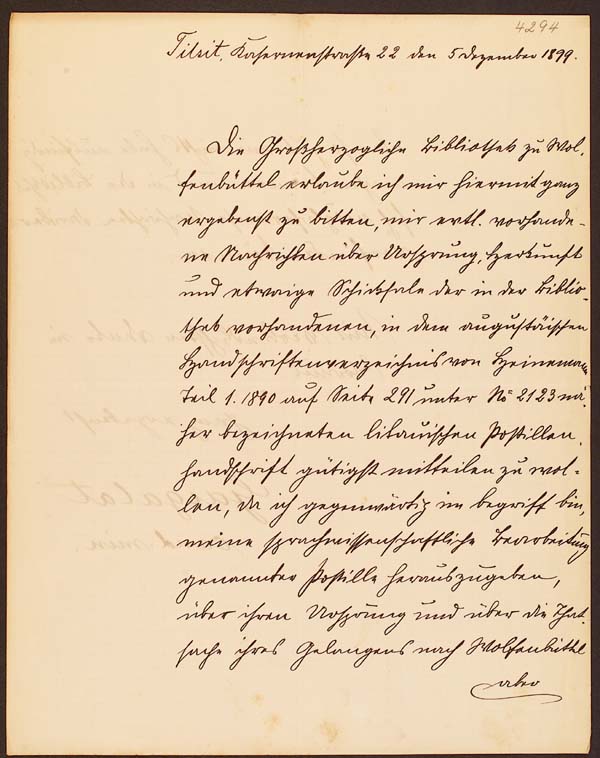 4294
Tilsit, Kasernenstraße 22 den 5 Dezember 1899.
Die Großherzogliche Bibliothek zu Wol-
fenbüttel erlaube ich mir hiermit ganz
ergebenst zu bitten, mir evtl. vorhande-
ne Nachrichten über Ursprung, Herkunft
und etwaige Schicksale der in der Biblio-
thek vorhandenen, in dem augustäischen
Handschriftenverzeichnis von Heinemann
Teil 1. 1890 auf Seite 291 unter No 2123 nä-
her bezeichneten litauischen Postillen-
handschrift gütigst mitteilen zu wol-
len, da ich gegenwärtig im begriff bin,
meine sprachwissenschaftliche Bearbeitung
genannter Postille herauszugeben,
über ihren Ursprung und über die That-
sache ihres Gelangens nach Wolfenbüttel
aber